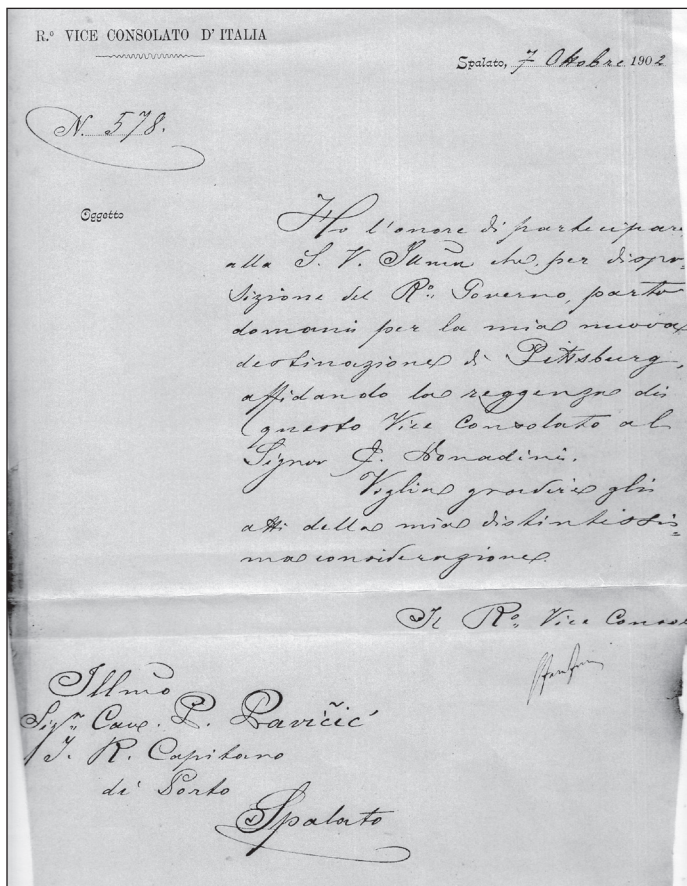 R.º VICE CONSOLATO D'ITALIA
Spalato, 7 Ottobre 1902
N. 578.
Oggetto
Ho l'onore di partecipar
alla S. V. Illma che, per dispo-
sizione del R.º Governo, parto
domani per la mia nuova
destinazione di Pittsburg,
affidando la reggenza di
questo Vice Consolato al
Signor Donadini.
Voglia gradire gli
atti della mia distintissi=
ma considerazione.
Il R.º Vice Conso
Illmo
Sigr Cav. P. Pavičić
I. R. Capitano
di Porto
Spalato